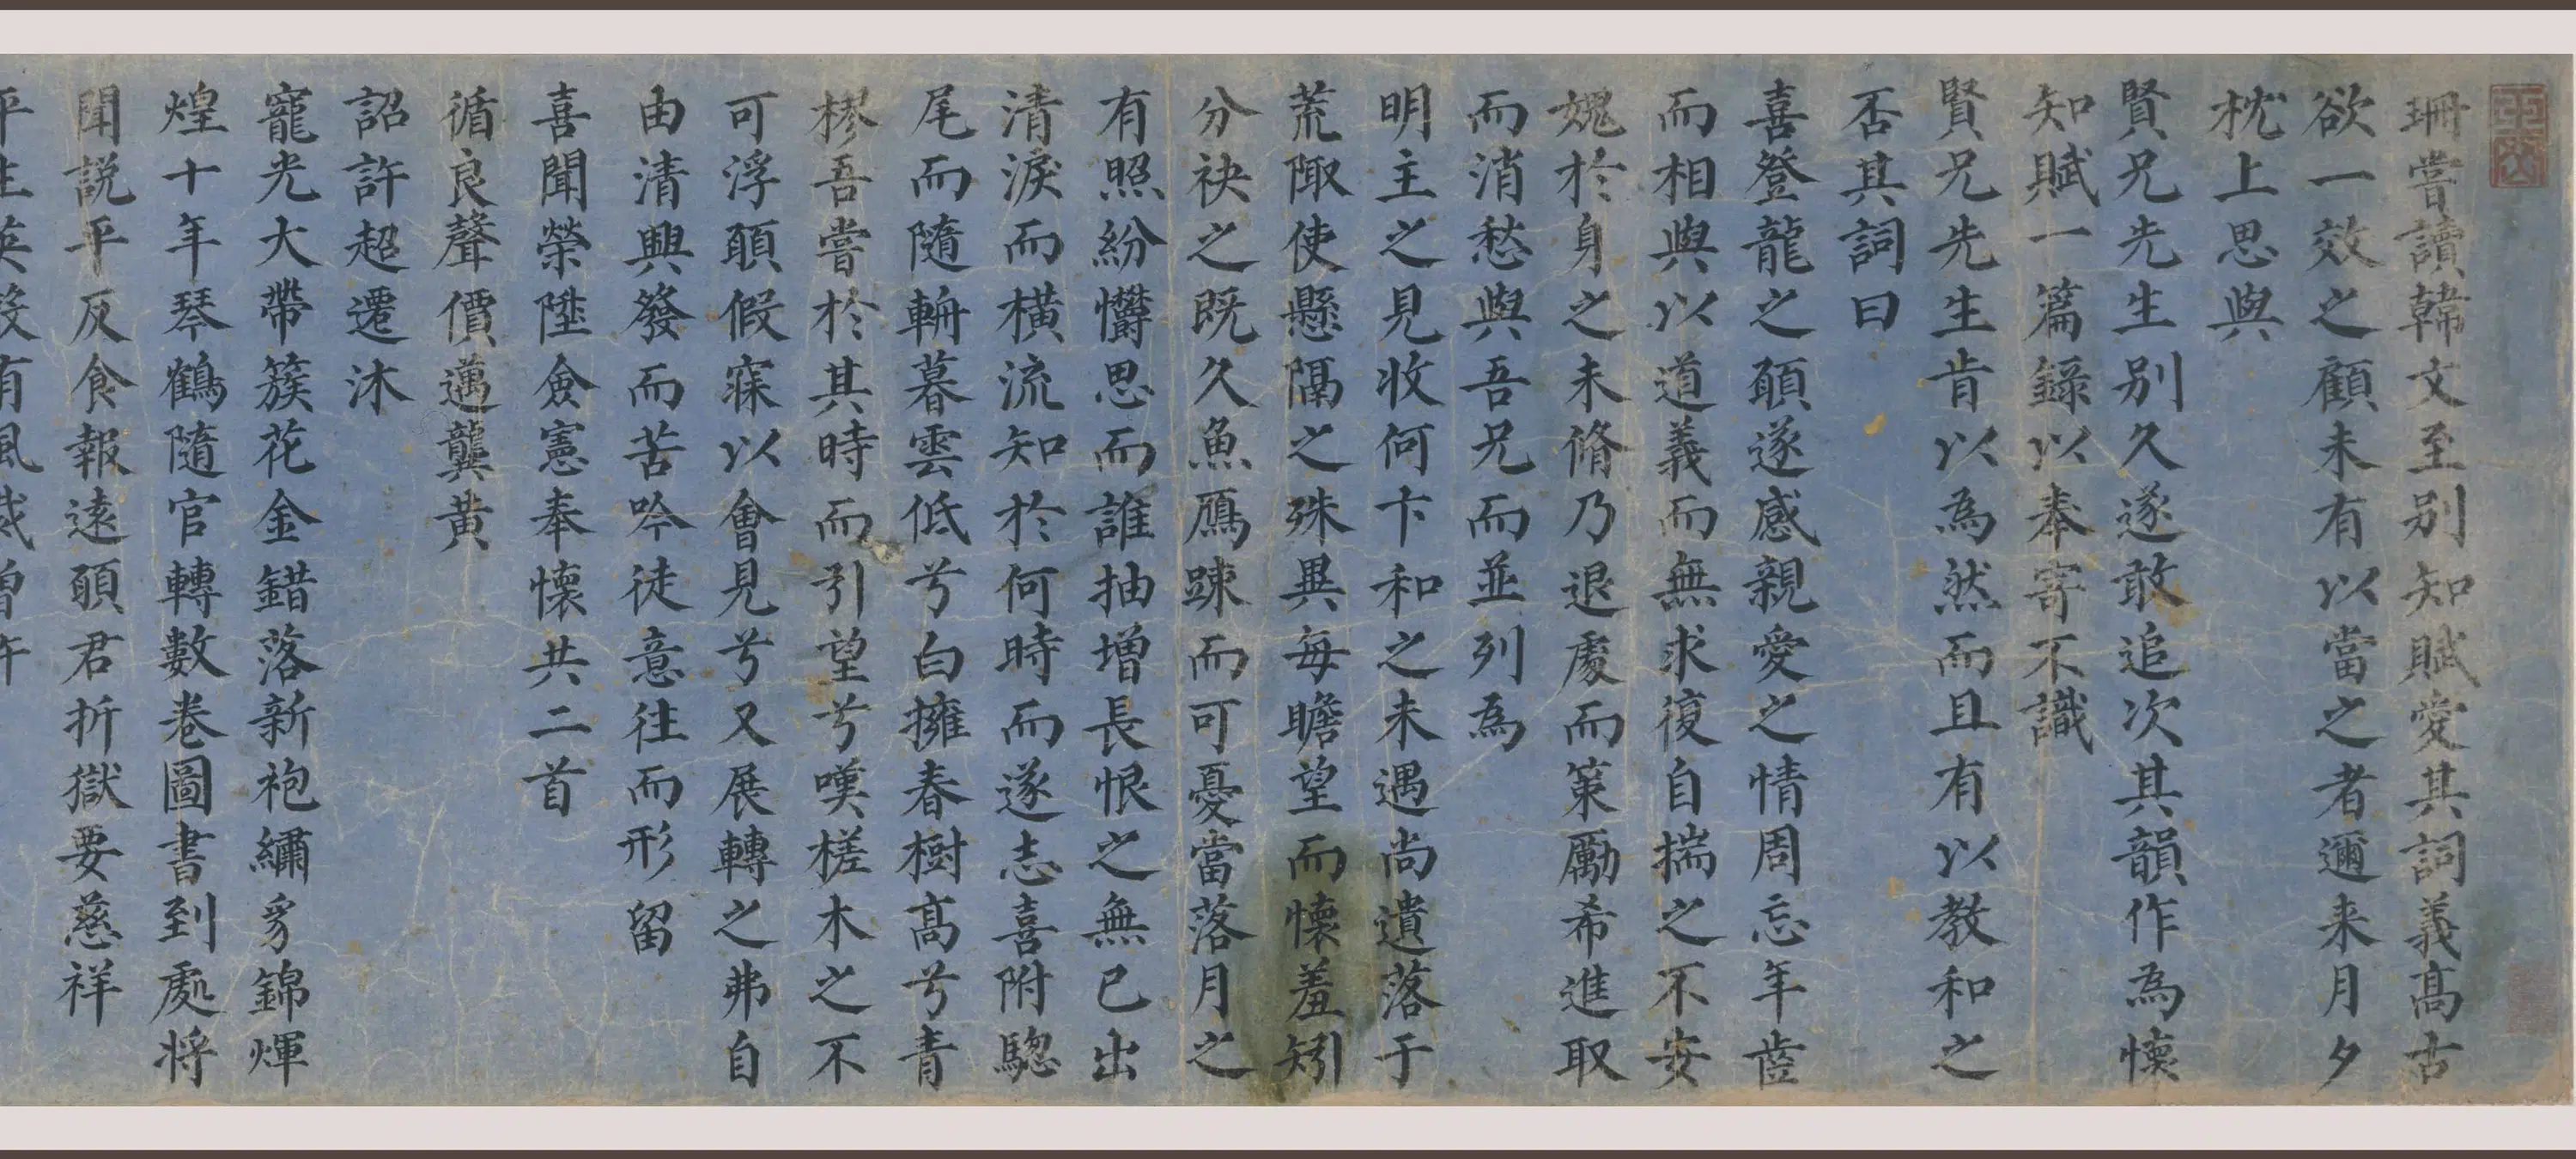 珊嘗讀韓文至别知賦愛其詞義髙古
欲一效之顧未有以當之者邇来月夕
枕上思與
賢兄先生别久遂敢追次其韻作為懷
知賦一篇錄以奉寄不識
賢兄先生肯以為然而且有以教和之
否其詞曰
喜登龍之願遂感親愛之情周忘年齒
而相與以道義而無求復自揣之不安
媿於身之未脩乃退處而策勵希進取
而消愁與吾兄而並列為
明主之見收何卞和之未遇尚遺落于
荒陬使懸隔之殊異每瞻望而懷羞矧
分袂之既久魚鴈踈而可憂當落月之
有照紛欝思而誰抽增長恨之無已出
清淚而橫流知於何時而遂志喜附驄
尾而隨輈暮雲低兮白擁春樹髙兮青
樛吾嘗於其時而引望兮嘆槎木之不
可浮願假寐以會見兮又展轉之弗自
由清興發而苦吟徒意往而形留
喜聞榮陞僉憲奉懷共二首
循良聲價邁龔黄
詔許超遷沐
寵光大帶簇花金錯落新袍繡豸錦煇
煌十年琴鶴隨官轉數卷圖書到處將
聞説平反食報遠願君折獄要慈祥
平生英發有風烕曾許